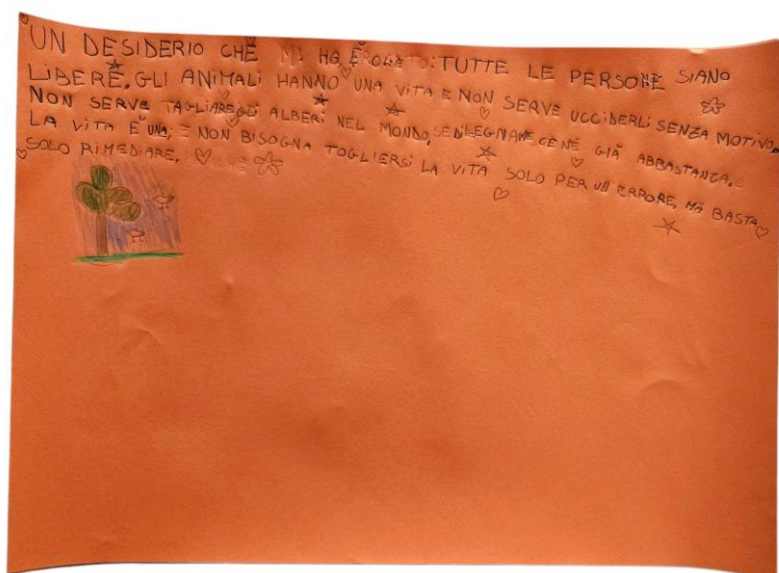 UN DESIDERIO CHE MI HO È : TUTTE LE PERSONE SIANO
LIBERE, GLI ANIMALI HANNO UNA VITA E NON SERVE UCCIDERLI SENZA MOTIVO.
NON SERVE TAGLIARE GLI ALBERI NEL MONDO, SE DI LEGNAME CENÈ GIÀ ABBASTANZA.
LA VITA È UNA, E NON BISOGNA TOGLIERSI LA VITA SOLO PER UN ERRORE, MA BASTA
SOLO RIMEDIARE.